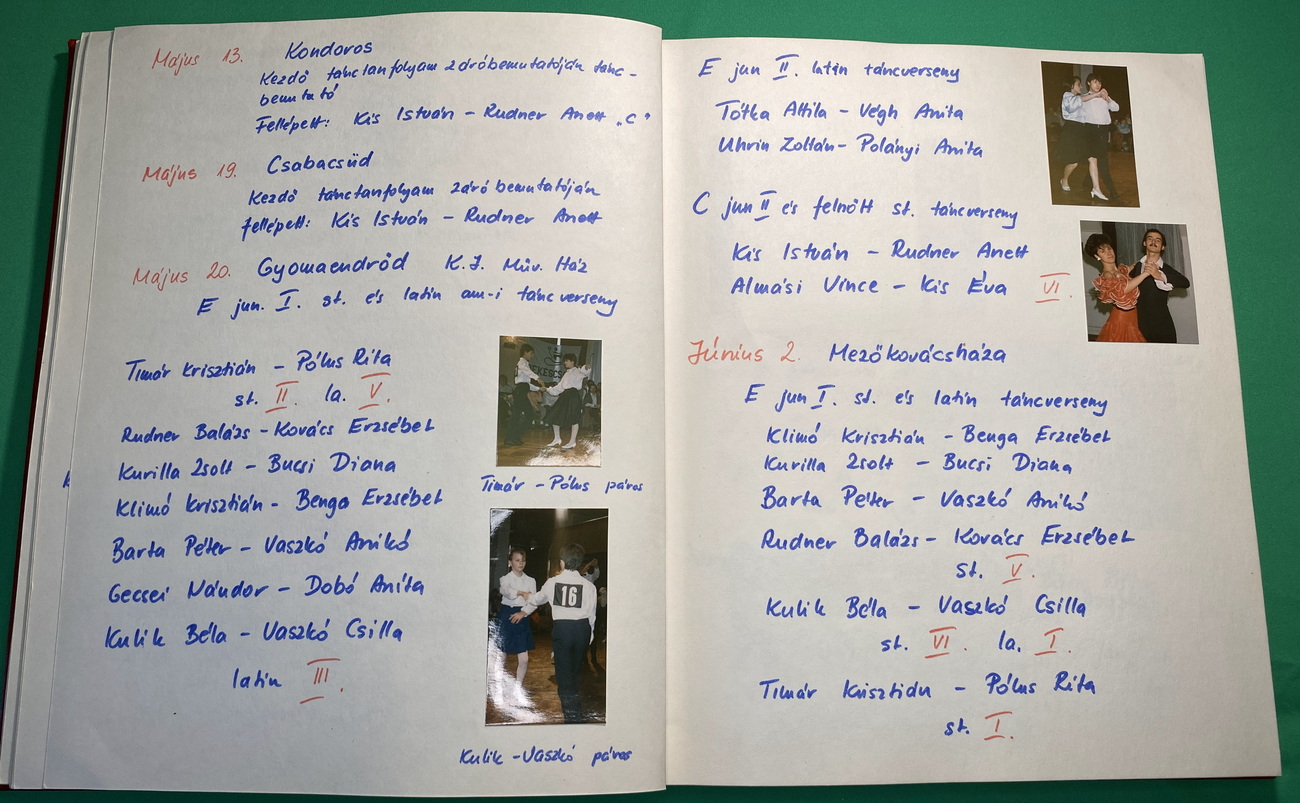 Május 13. Kondoros
Kezdő tánctanfolyam záróbemutatóján tánc-
bemutató
Fellépett: Kis István - Rudner Anett „C"
Május 19. Csabacsüd
Kezdő tánctanfolyam záró bemutatóján
fellépett: Kis István - Rudner Anett
Május 20. Gyomaendrőd K.J. Műv. Ház
E jun. I. st. és latin am-i táncverseny
Timár Krisztián - Pólus Rita
st. II. la. V.
Rudner Balázs - Kovács Erzsébet
Kurilla Zsolt - Bucsi Diana
Klimó Krisztián - Benga Erzsébet
Barta Péter - Vaszkó Anikó
Gecsei Nándor - Dobó Anita
Kulik Béla - Vaszkó Csilla
latin III.
Timár - Pólus páros
16
Kulik - Vaszkó páros
E jun II. latin táncverseny
Tótka Attila - Végh Anita
Uhrin Zoltán - Polányi Anita
C jun II és felnőtt st. táncverseny
Kis István - Rudner Anett
Almási Vince - Kis Éva VI.
Június 2. Mezőkovácsháza
E jun I. st. és latin táncverseny
Klimó Krisztián - Benga Erzsébet
Kurilla Zsolt - Bucsi Diana
Barta Péter - Vaszkó Anikó
Rudner Balázs - Kovács Erzsébet
st. V.
Kulik Béla - Vaszkó Csilla
st. VI. la. I.
Timár Krisztián - Pólus Rita
st. I.